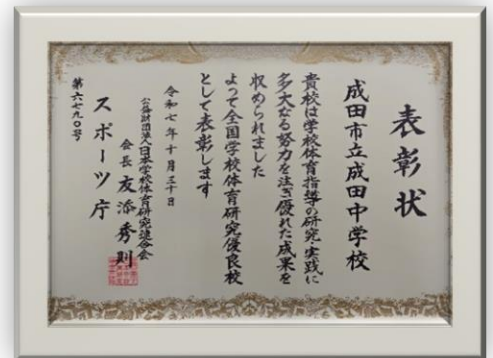 表彰状
成田市立成田中学校
貴校は学校体育指導の研究実践に
多大なる努力を注ぎ優れた成果を
収められました
よって全国学校体育研究優良校
として表彰します
令和七年十月三十日
公益財団法人日本学校体育研究連合会
会長 友添秀則
スポーツ庁
第六七九〇号